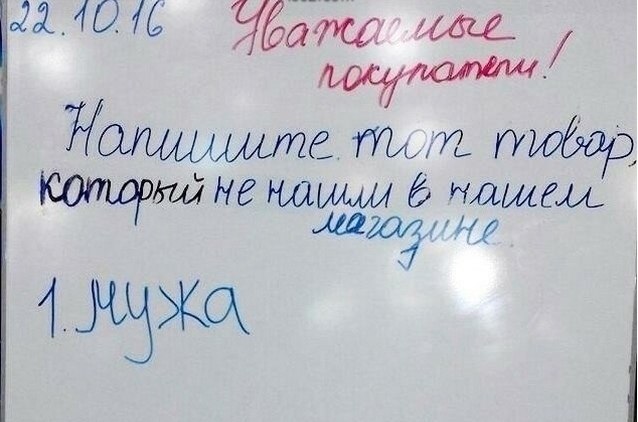 22.10.16 Уважаемые
покупатели!
Напишите тот товар,
который не нашли в нашем
магазине.
1. Мужа